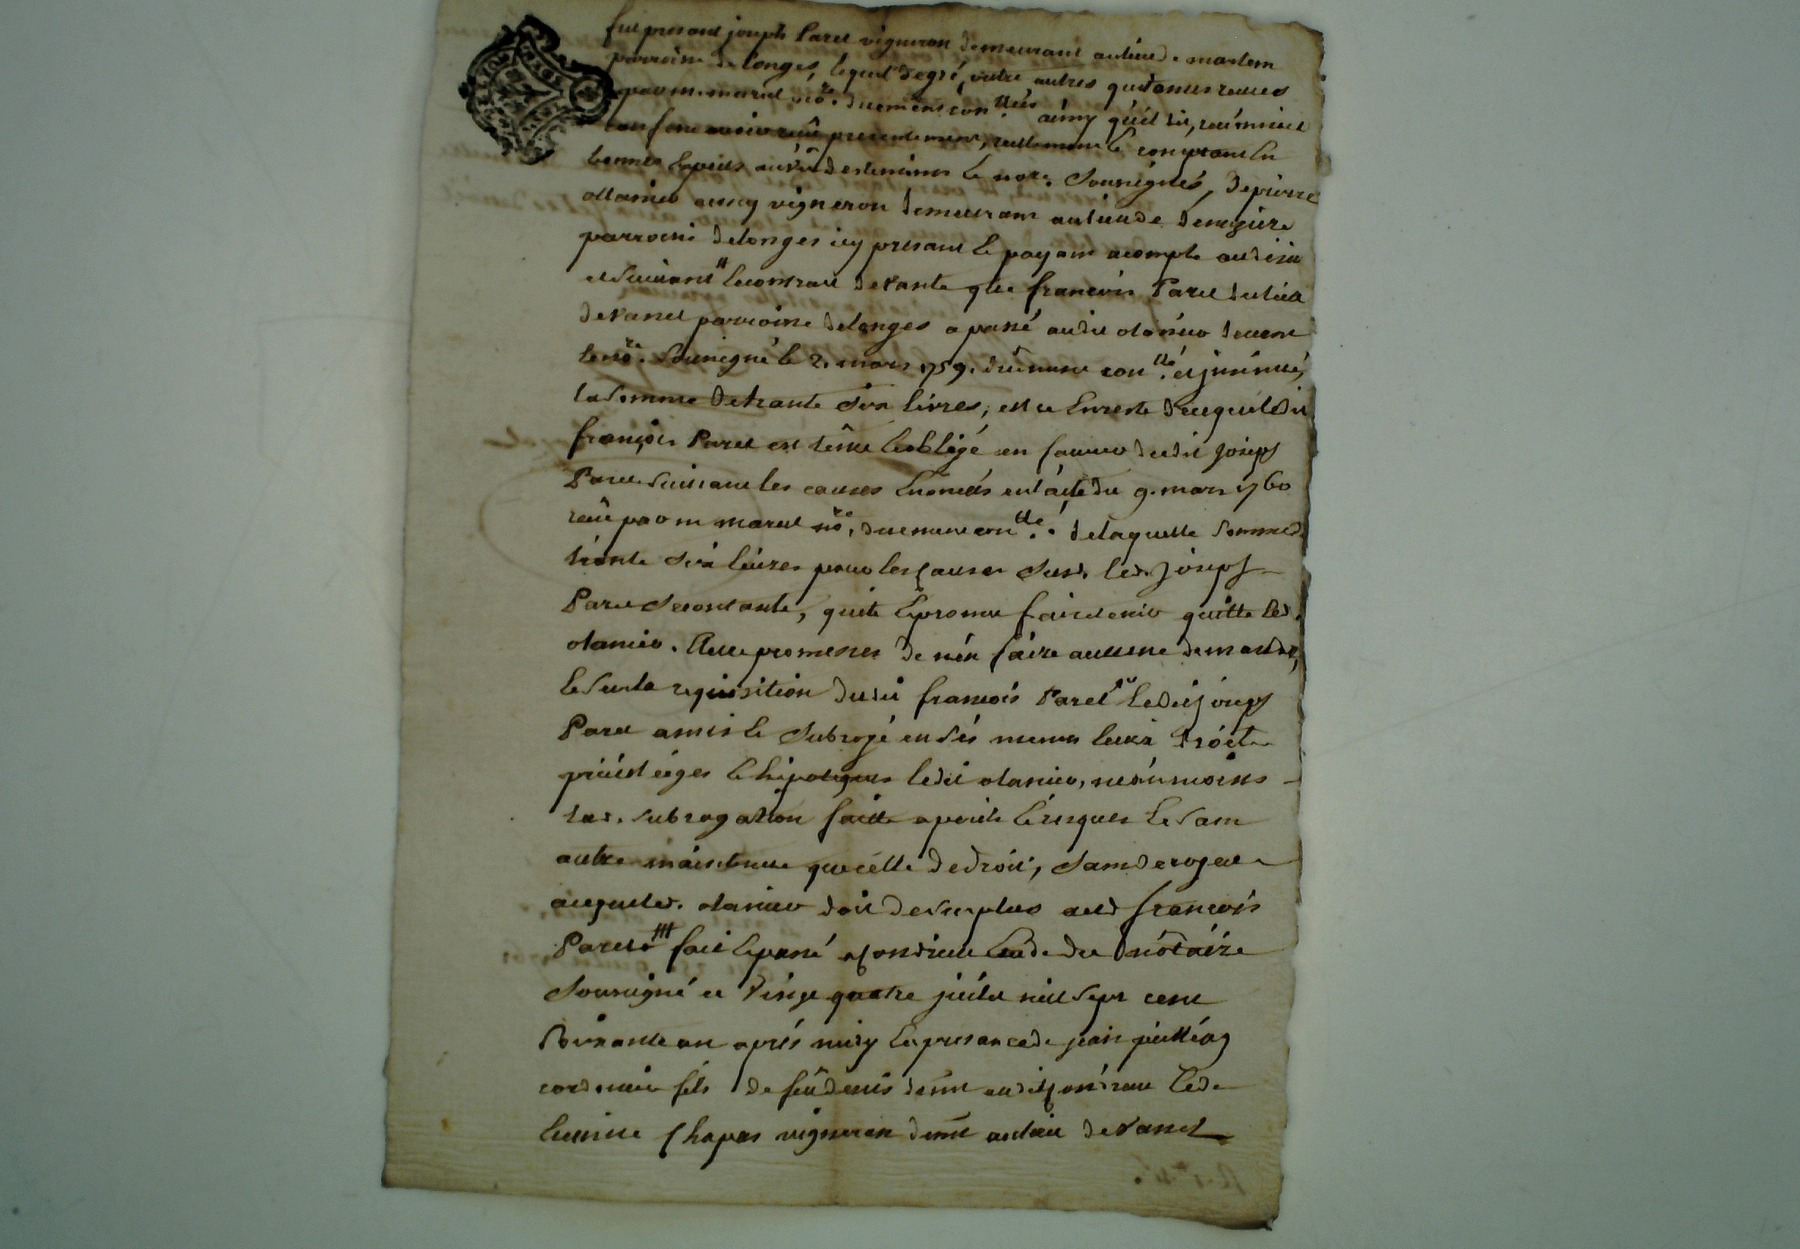 fut present joseph Paret vigneron demeurant au lieu de martem
parroisse de longes, lequel de gré, outre autres quittances receues
par m. maret no.re duement con.llées ainsy qu'il dit, reconnoit
confesse avoir reçu presentement, reellement & comptant en
bonnes especes au vû des temoins & no.re soussignés, de pierre
ollanier aussy vigneron demeurant au lieu de
parroisse de longes icy present & payant acompte au desir
et suivant # le contract de vante que francois Paret du lieu
de vanel parroisse de longes a passé audit olanier devant
le no.re soussigné le 2. mars 1759. duement con.llé & insinué,
la somme de trante six livres, et ce en reste de ce que ledit
françois Paret est tenu & obligé en faveur dudit joseph
Paret suivant les causes enoncés en l'acte du 9. mars 1760
reçu par m maret no.re, duement con.llé. de laquelle somme de
trante six livres pour les causes susd. led. joseph
Paret se contante, quite & promet faire tenir quitte led.
olanier. avec promesses de n'en faire aucune demande,
& sur la requisition dudit francois Paret ledit joseph
Paret a mis & subrogé en ses memes lieux droits
privileges & hipoteques ledit olanier, neanmoins
lad. subrogation faitte a perils & risques & sans
autre maintenue que celle de droit, sans deroger a
ce que led. olanier doit de surplus aud françois
Paret # fait & passé a condrieu etude du notaire
soussigné ce vingt quatre juilet mil sept cent
soixante un après midy en presence de jean
cordonnier fils de feu denis demt audit condrieu & de
etienne Chapas vigneron demt au lieu de vanel